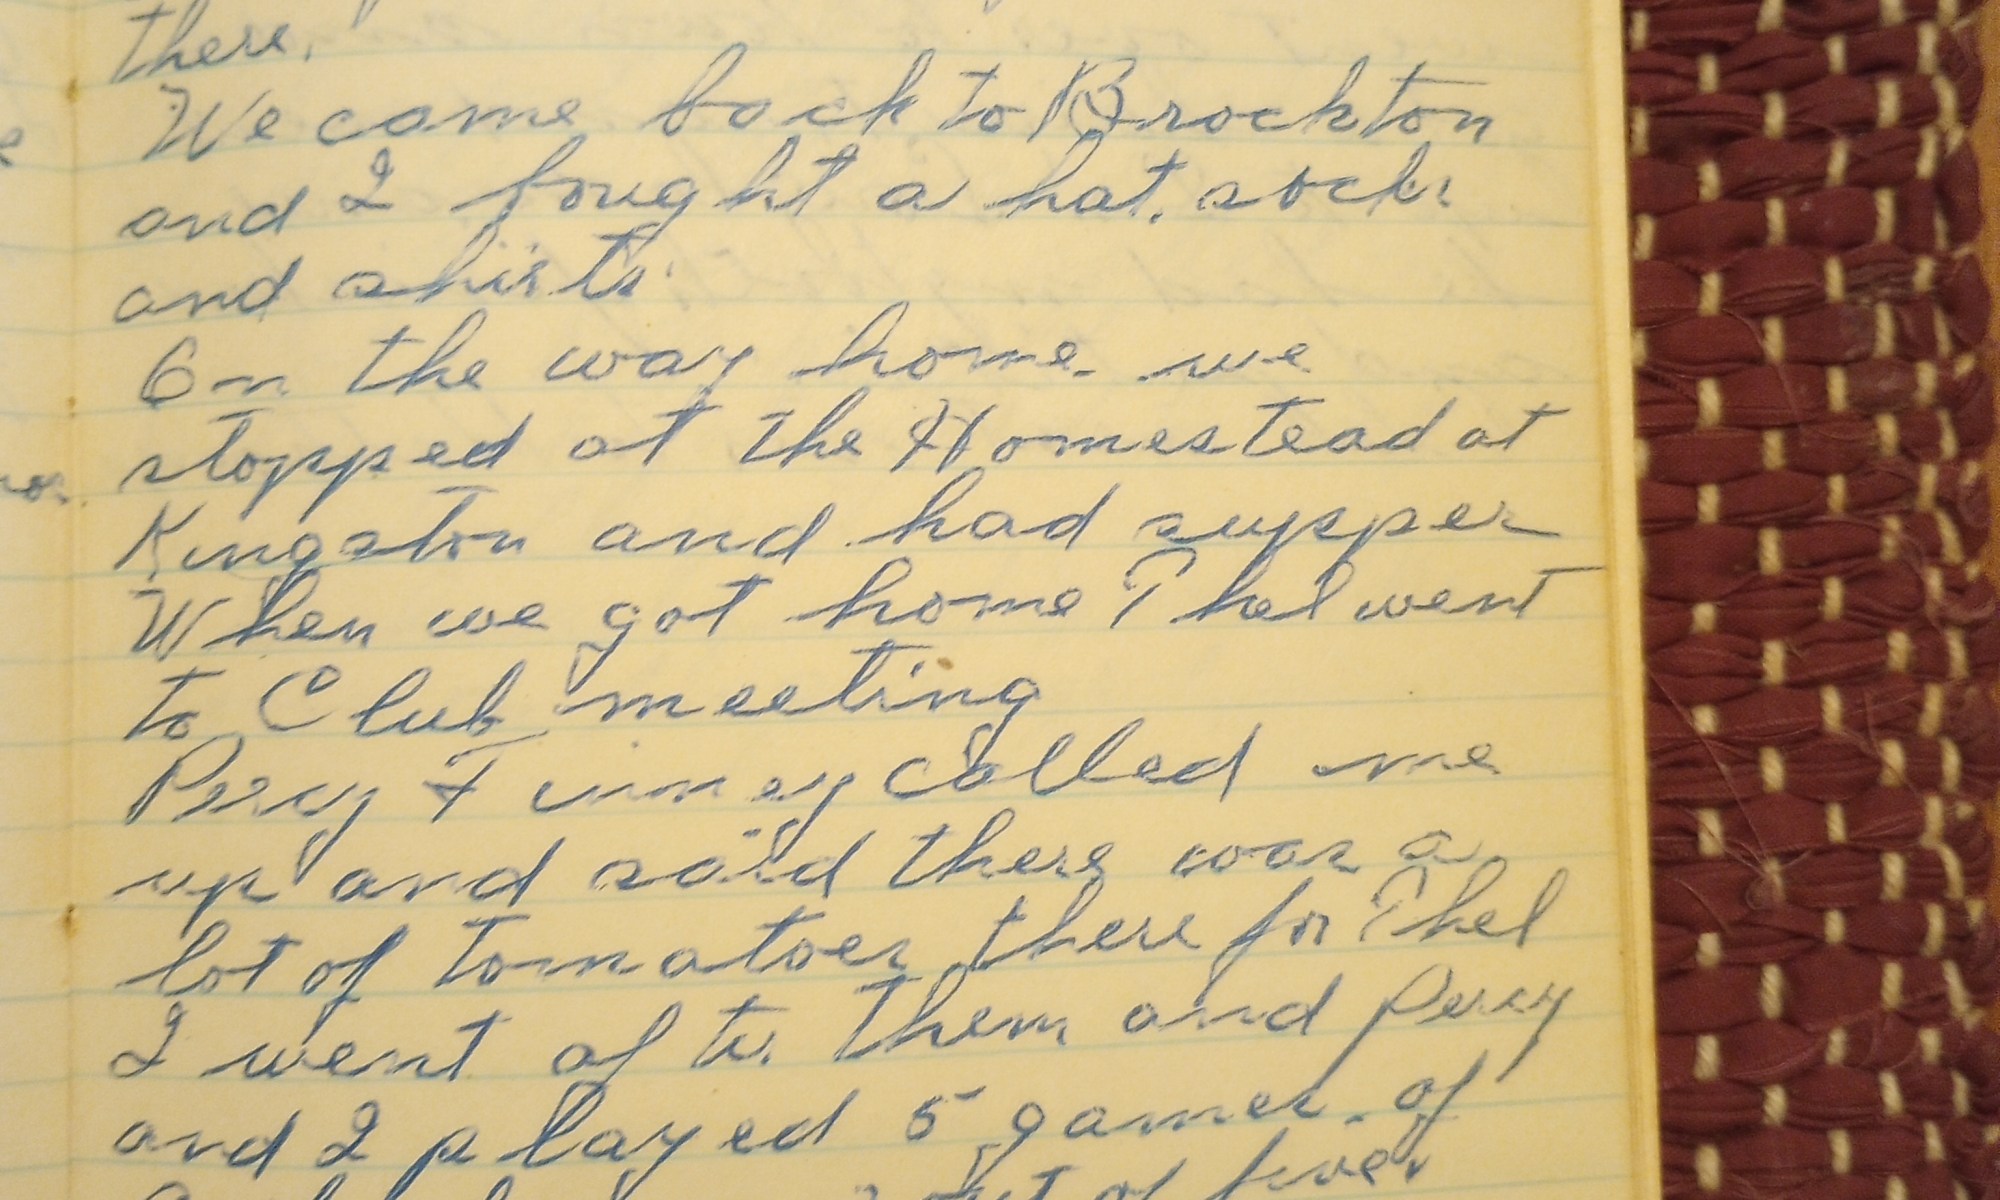 there.
We came back to Brockton
and I bought a hat, socks
and shirts
On the way home we
stopped at the Homestead at
Kingston and had supper
When we got home Thel went
to Club meeting
Percy Finney called me
up and said there was a
lot of tomatoes there for Thel
I went after them and Percy
and I played 5 games of
out of five